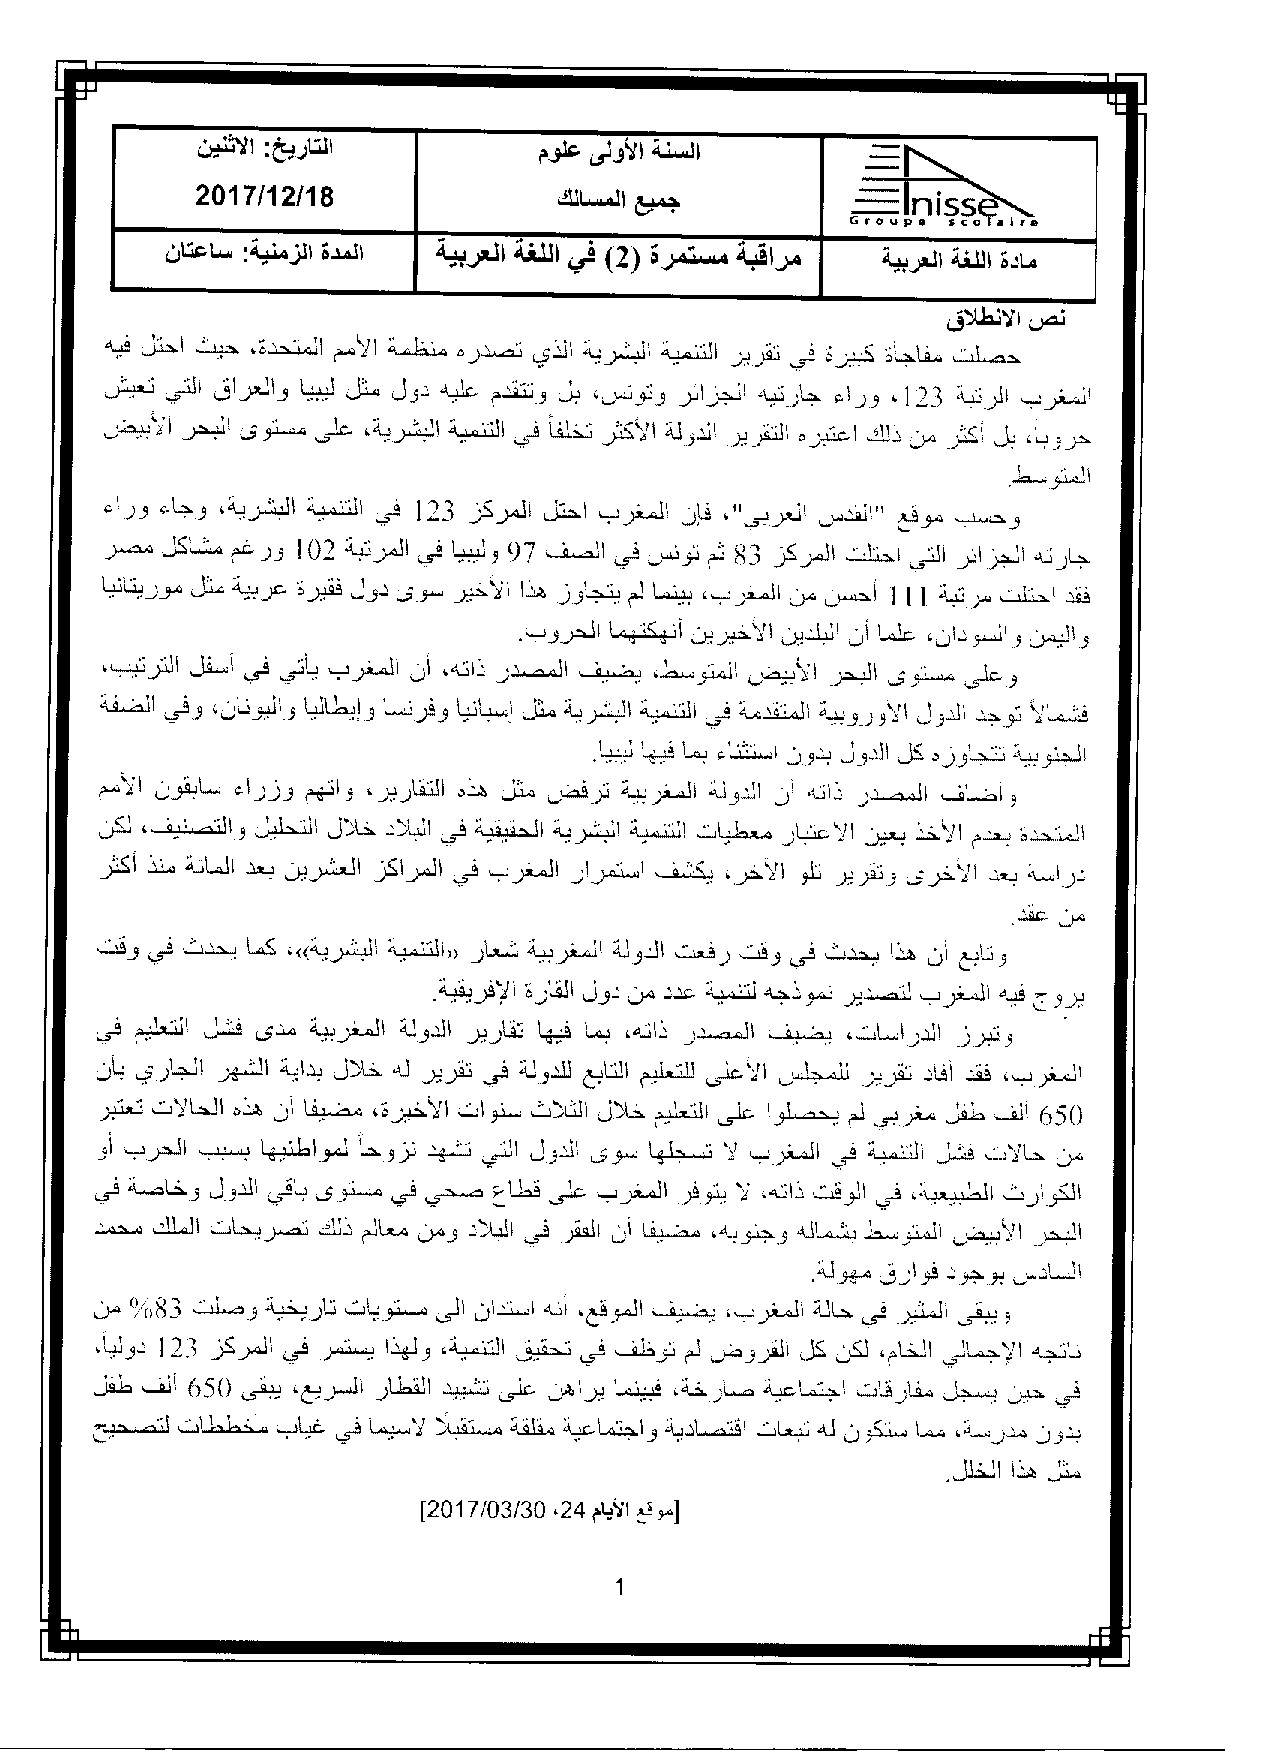 Anisse
Groupe scolaire
السنة الأولى علوم
جميع المسالك
التاريخ: الاثنين
2017/12/18
مادة اللغة العربية
مراقبة مستمرة (2) في اللغة العربية
المدة الزمنية: ساعتان
نص الانطلاق
حصلت مفاجأة كبيرة في تقرير التنمية البشرية الذي تصدره منظمة الأمم المتحدة، حيث احتل فيه
المغرب الرتبة 123، وراء جارتيه الجزائر وتونس، بل وتتقدم عليه دول مثل ليبيا والعراق التي تعيش
حروبا، بل أكثر من ذلك اعتبره التقرير الدولة الأكثر تخلفاً في التنمية البشرية، على مستوى البحر الأبيض
المتوسط.
وحسب موقع "القدس العربي"، فإن المغرب احتل المركز 123 في التنمية البشرية، وجاء وراء
جارته الجزائر التي احتلت المركز 83 ثم تونس في الصف 97 وليبيا في المرتبة 102 ورغم مشاكل مصر
فقد احتلت مرتبة 111 أحسن من المغرب، بينما لم يتجاوز هذا الأخير سوى دول فقيرة عربية مثل موريتانيا
واليمن والسودان، علما أن البلدين الأخيرين أنهكتهما الحروب.
وعلى مستوى البحر الأبيض المتوسط، يضيف المصدر ذاته، أن المغرب يأتي في أسفل الترتيب،
فشمالا توجد الدول الأوروبية المتقدمة في التنمية البشرية مثل إسبانيا وفرنسا وإيطاليا واليونان، وفي الضفة
الجنوبية تتجاوزه كل الدول بدون استثناء بما فيها ليبيا.
وأضاف المصدر ذاته أن الدولة المغربية ترفض مثل هذه التقارير، واتهم وزراء سابقون الأمم
المتحدة بعدم الأخذ بعين الاعتبار معطيات التنمية البشرية الحقيقية في البلاد خلال التحليل والتصنيف، لكن
دراسة بعد الأخرى وتقرير تلو الآخر، يكشف استمرار المغرب في المراكز العشرين بعد المائة منذ أكثر
من عقد.
وتابع أن هذا يحدث في وقت رفعت الدولة المغربية شعار «التنمية البشرية»، كما يحدث في وقت
يروج فيه المغرب لتصدير نموذجه لتنمية عدد من دول القارة الإفريقية.
وتبرز الدراسات، يضيف المصدر ذاته، بما فيها تقارير الدولة المغربية مدى فشل التعليم في
المغرب، فقد أفاد تقرير للمجلس الأعلى للتعليم التابع للدولة في تقرير له خلال بداية الشهر الجاري بأن
650 ألف طفل مغربي لم يحصلوا على التعليم خلال الثلاث سنوات الأخيرة، مضيفا أن هذه الحالات تعتبر
من حالات فشل التنمية في المغرب لا تسجلها سوى الدول التي تشهد نزوحاً لمواطنيها بسبب الحرب أو
الكوارث الطبيعية، في الوقت ذاته، لا يتوفر المغرب على قطاع صحي في مستوى باقي الدول وخاصة في
البحر الأبيض المتوسط بشماله وجنوبه، مضيفا أن الفقر في البلاد ومن معالم ذلك تصريحات الملك محمد
السادس بوجود فوارق مهولة.
ويبقى المثير في حالة المغرب، يضيف الموقع، أنه استدان الى مستويات تاريخية وصلت 83% من
ناتجه الإجمالي الخام، لكن كل القروض لم توظف في تحقيق التنمية، ولهذا يستمر في المركز 123 دولياً،
في حين يسجل مفارقات اجتماعية صارخة، فبينما يراهن على تشييد القطار السريع، يبقى 650 ألف طفل
بدون مدرسة، مما ستكون له تبعات اقتصادية واجتماعية مقلقة مستقبلاً لاسيما في غياب مخططات لتصحيح
مثل هذا الخلل.
[موقع الأيام 24، 2017/03/30]
1